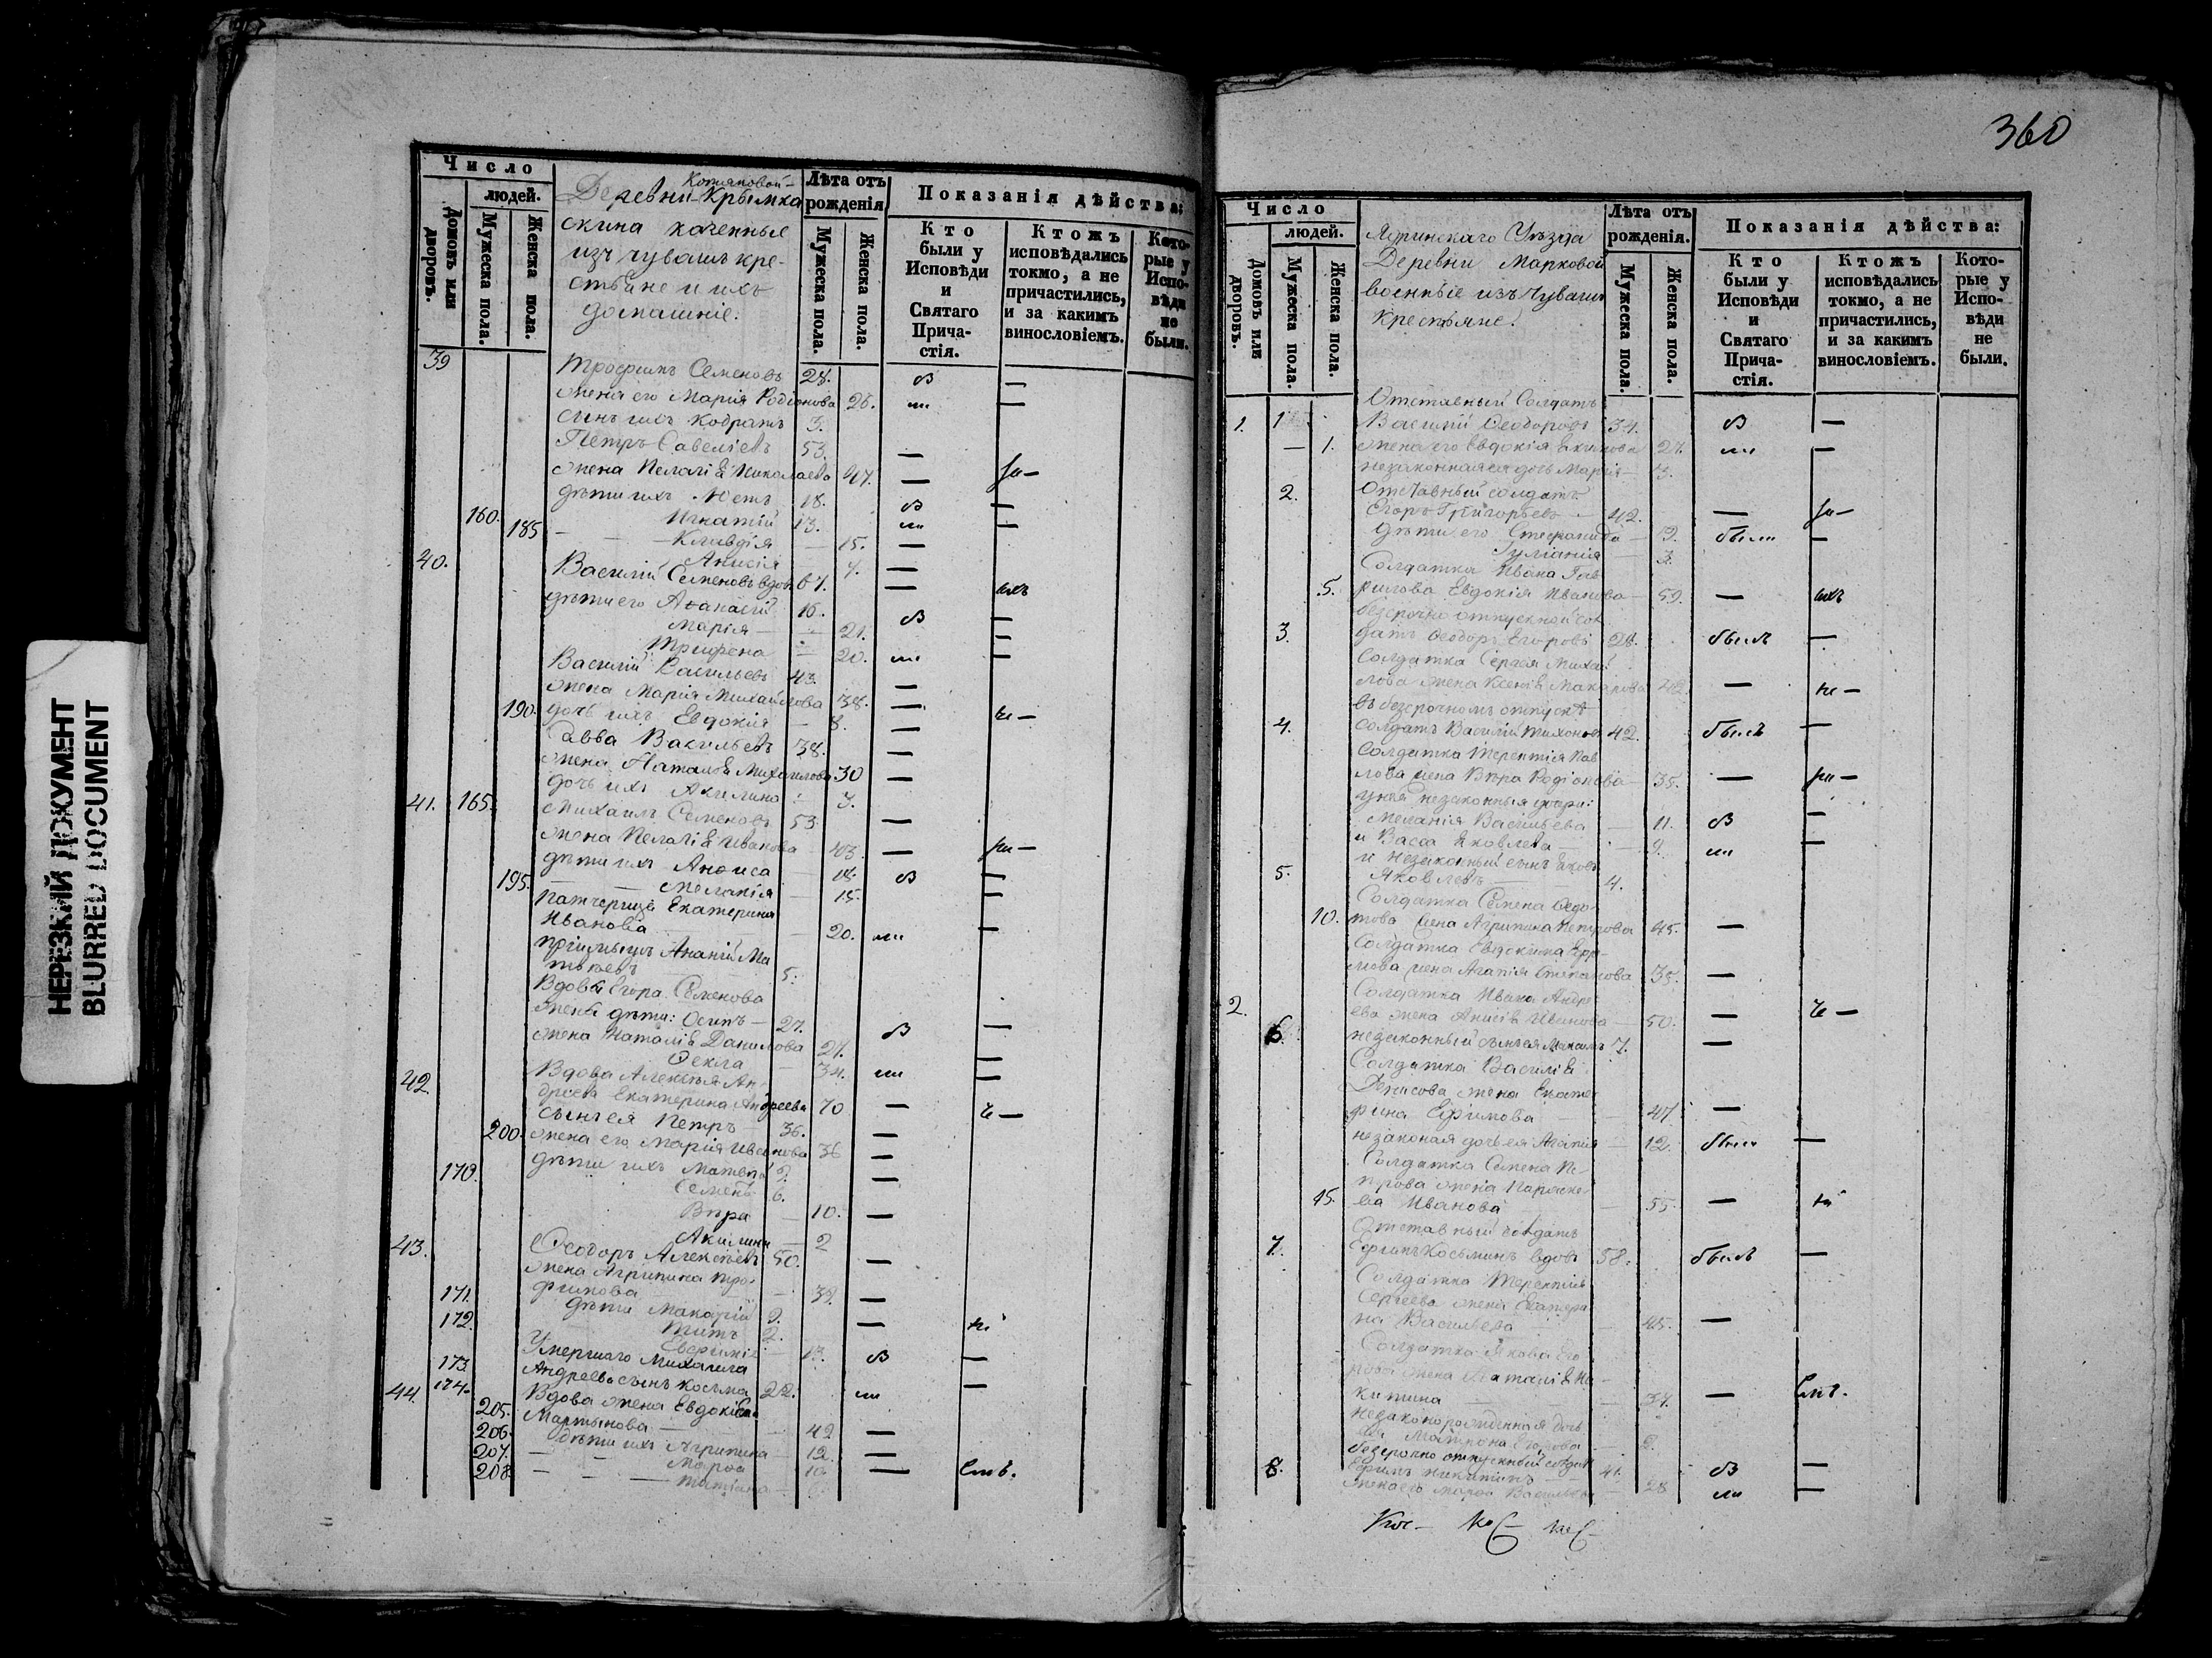 НЕРЕЗКИЙ ДОКУМЕНТ
BLURRED DOCUMENT
Число
людей.
Домовъ или дворовъ.
Мужеска пола.
Женска пола.
Котяковой
Деревни Крымка
скина казенные
изъ чувашъ кре-
стьяне и ихъ
домашніе.
Лѣта отъ рожденія
Мужеска пола.
Женска пола.
Показанія дѣйства:
Кто были у Исповѣди и Святаго Прича-стія.
Ктожъ исповѣдались токмо, а не причастились, и за какимъ винословіемъ.
Кото-рые у Испо-вѣди не были.
39 Трофимъ Семеновъ 28. —
жена его Марія Родіонова 26. —
сынъ ихъ Кодратъ 3.
Петръ Савеліевъ 53. —
жена Пелагія Николаева 47. —
дѣти ихъ 18. —
160. Игнатій 13. —
185 Клавдія — 15. —
Анисія 7. —
40. Василій Семеновъ вдовъ 67. —
дѣти его Афанасій 16. —
Марія — 21. —
Трифена 20. —
Василій Васильевъ 43. —
жена Марія Михайлова 38. —
190. дочь ихъ Евдокія — 8. —
Савва Васильевъ 38. —
жена Наталія Михайлова 30 —
дочь ихъ Акилина 3.
41. 165. Михаилъ Семеновъ 53. —
жена Пелагія Иванова 43. —
дѣти ихъ Анфиса 18. —
195. Меланія 15. —
Патчерица Екатерина
Иванова 20. —
Ананій Ма
твѣевъ 5.
Вдовы Егора Семенова
жены дѣти: Осипъ — 27. —
жена Наталія Данилова 27. —
Фекла 34. —
42. Вдова Алексѣя Ан-
дреева Екатерина Андреева 70 —
сынъ ея Петръ — 36. —
200. жена его Марія Иванова 36 —
170. дѣти ихъ Матвѣй 9. —
Семенъ 6.
Вѣра — 10. —
Акилина — 2
43. Феодоръ Алексѣевъ 50. —
жена Агрипина Тро-
171. фимова 39. —
172. дѣти Макарій 9. —
Титъ 2.
Евфимія 13. —
173. Умершаго Михаила
174. Андреева сынъ Косьма 22. —
44. Вдова жена Евдокія
205. Мартынова — 42 —
206. дѣти ихъ Агрипина — 12. —
207. Марфа 10. —
208. Татіана —
360
Число
людей.
Домовъ или дворовъ.
Мужеска пола.
Женска пола.
Ядринскаго Уѣзда
Деревни Марковой
военные изъ Чувашъ
крестьяне.
Лѣта отъ рожденія.
Мужеска пола.
Женска пола.
Показанія дѣйства:
Кто были у Исповѣди и Святаго Прича-стія.
Ктожъ исповѣдались токмо, а не причастились, и за какимъ винословіемъ.
Кото-рые у Испо-вѣди не были.
Отставный Солдатъ
1. 1 Василій Феодоровъ 34. —
— 1. жена его Евдокія Екимова 27. —
незаконная ея дочь Марія — 3.
2. Отставный солдатъ
Егоръ Григорьевъ — 42. —
дѣти его Стефанида — 9. были —
Іуліанія 3.
Солдатка Ивана Гав
5. рилова Евдокія Иванова — 59. — ихъ
безсрочно отпускной сол
3. датъ Феодоръ Егоровъ 28. былъ —
Солдатка Сергѣя Михай
лова жена Ксенія Макарова 42. —
въ безсрочномъ отпускѣ
4. солдатъ Василій Тихоновъ 42. былъ —
Солдатка Терентія Пав
лова жена Вѣра Родіонова — 35. —
у ней незаконныя дочери:
Меланія Васильева — 11. —
и Васса Яковлева — 9. —
и незаконный сынъ Яковъ
5. Яковлевъ 4.
Солдатка Семена Федо-
10. това жена Агрипина Петрова 45. —
Солдатка Евдокима Ефи-
мова жена Агапія Степанова 35. —
Солдатка Ивана Андре
2. ева жена Анисія Иванова — 50. —
6. незаконный сынъ ея Максимъ 7. —
Солдатка Василія
Денисова жена Екате
рина Ефимова 47 —
незаконая дочь ея Агапія — 12. были —
Солдатка Семена Пе-
трова жена Параске-
15. ва Иванова — 55. —
Отставный солдатъ
7. Ефимъ Косьминъ вдовъ 58. былъ —
Солдатка Терентія
Сергѣева жена Екатери
на Васильева — 45. —
Солдатка Якова Его
рова жена Наталія Ни-
китина — 37. —
Незаконорожденная дочь
ея Матрона Егорова
безсрочно отпускный солдатъ
8. Ефимъ Никитинъ — 41. —
жена его Марфа Васильева — 28 —